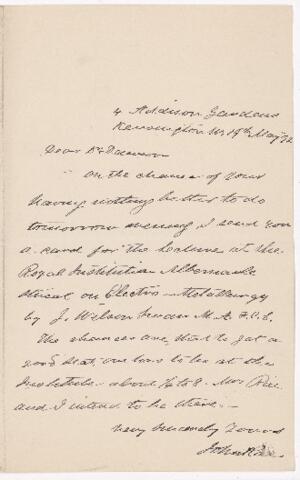 4 Addison Gardens
Kensington W. 19th May 92
Dear Dr Dawson
On the chance of your
having nothing better to do
tomorrow evening I send you
a card for the Lecture at the
Royal Institution Albemarle
Street on Electro-Metallurgy
by J. Wilson Swan M.A. F.C.S.
The chances are that to get a
good seat, one has to be at the
Institute about ¼ to 8. Mrs Rae
and I intend to be there.
Very Sincerely Yours
John Rae